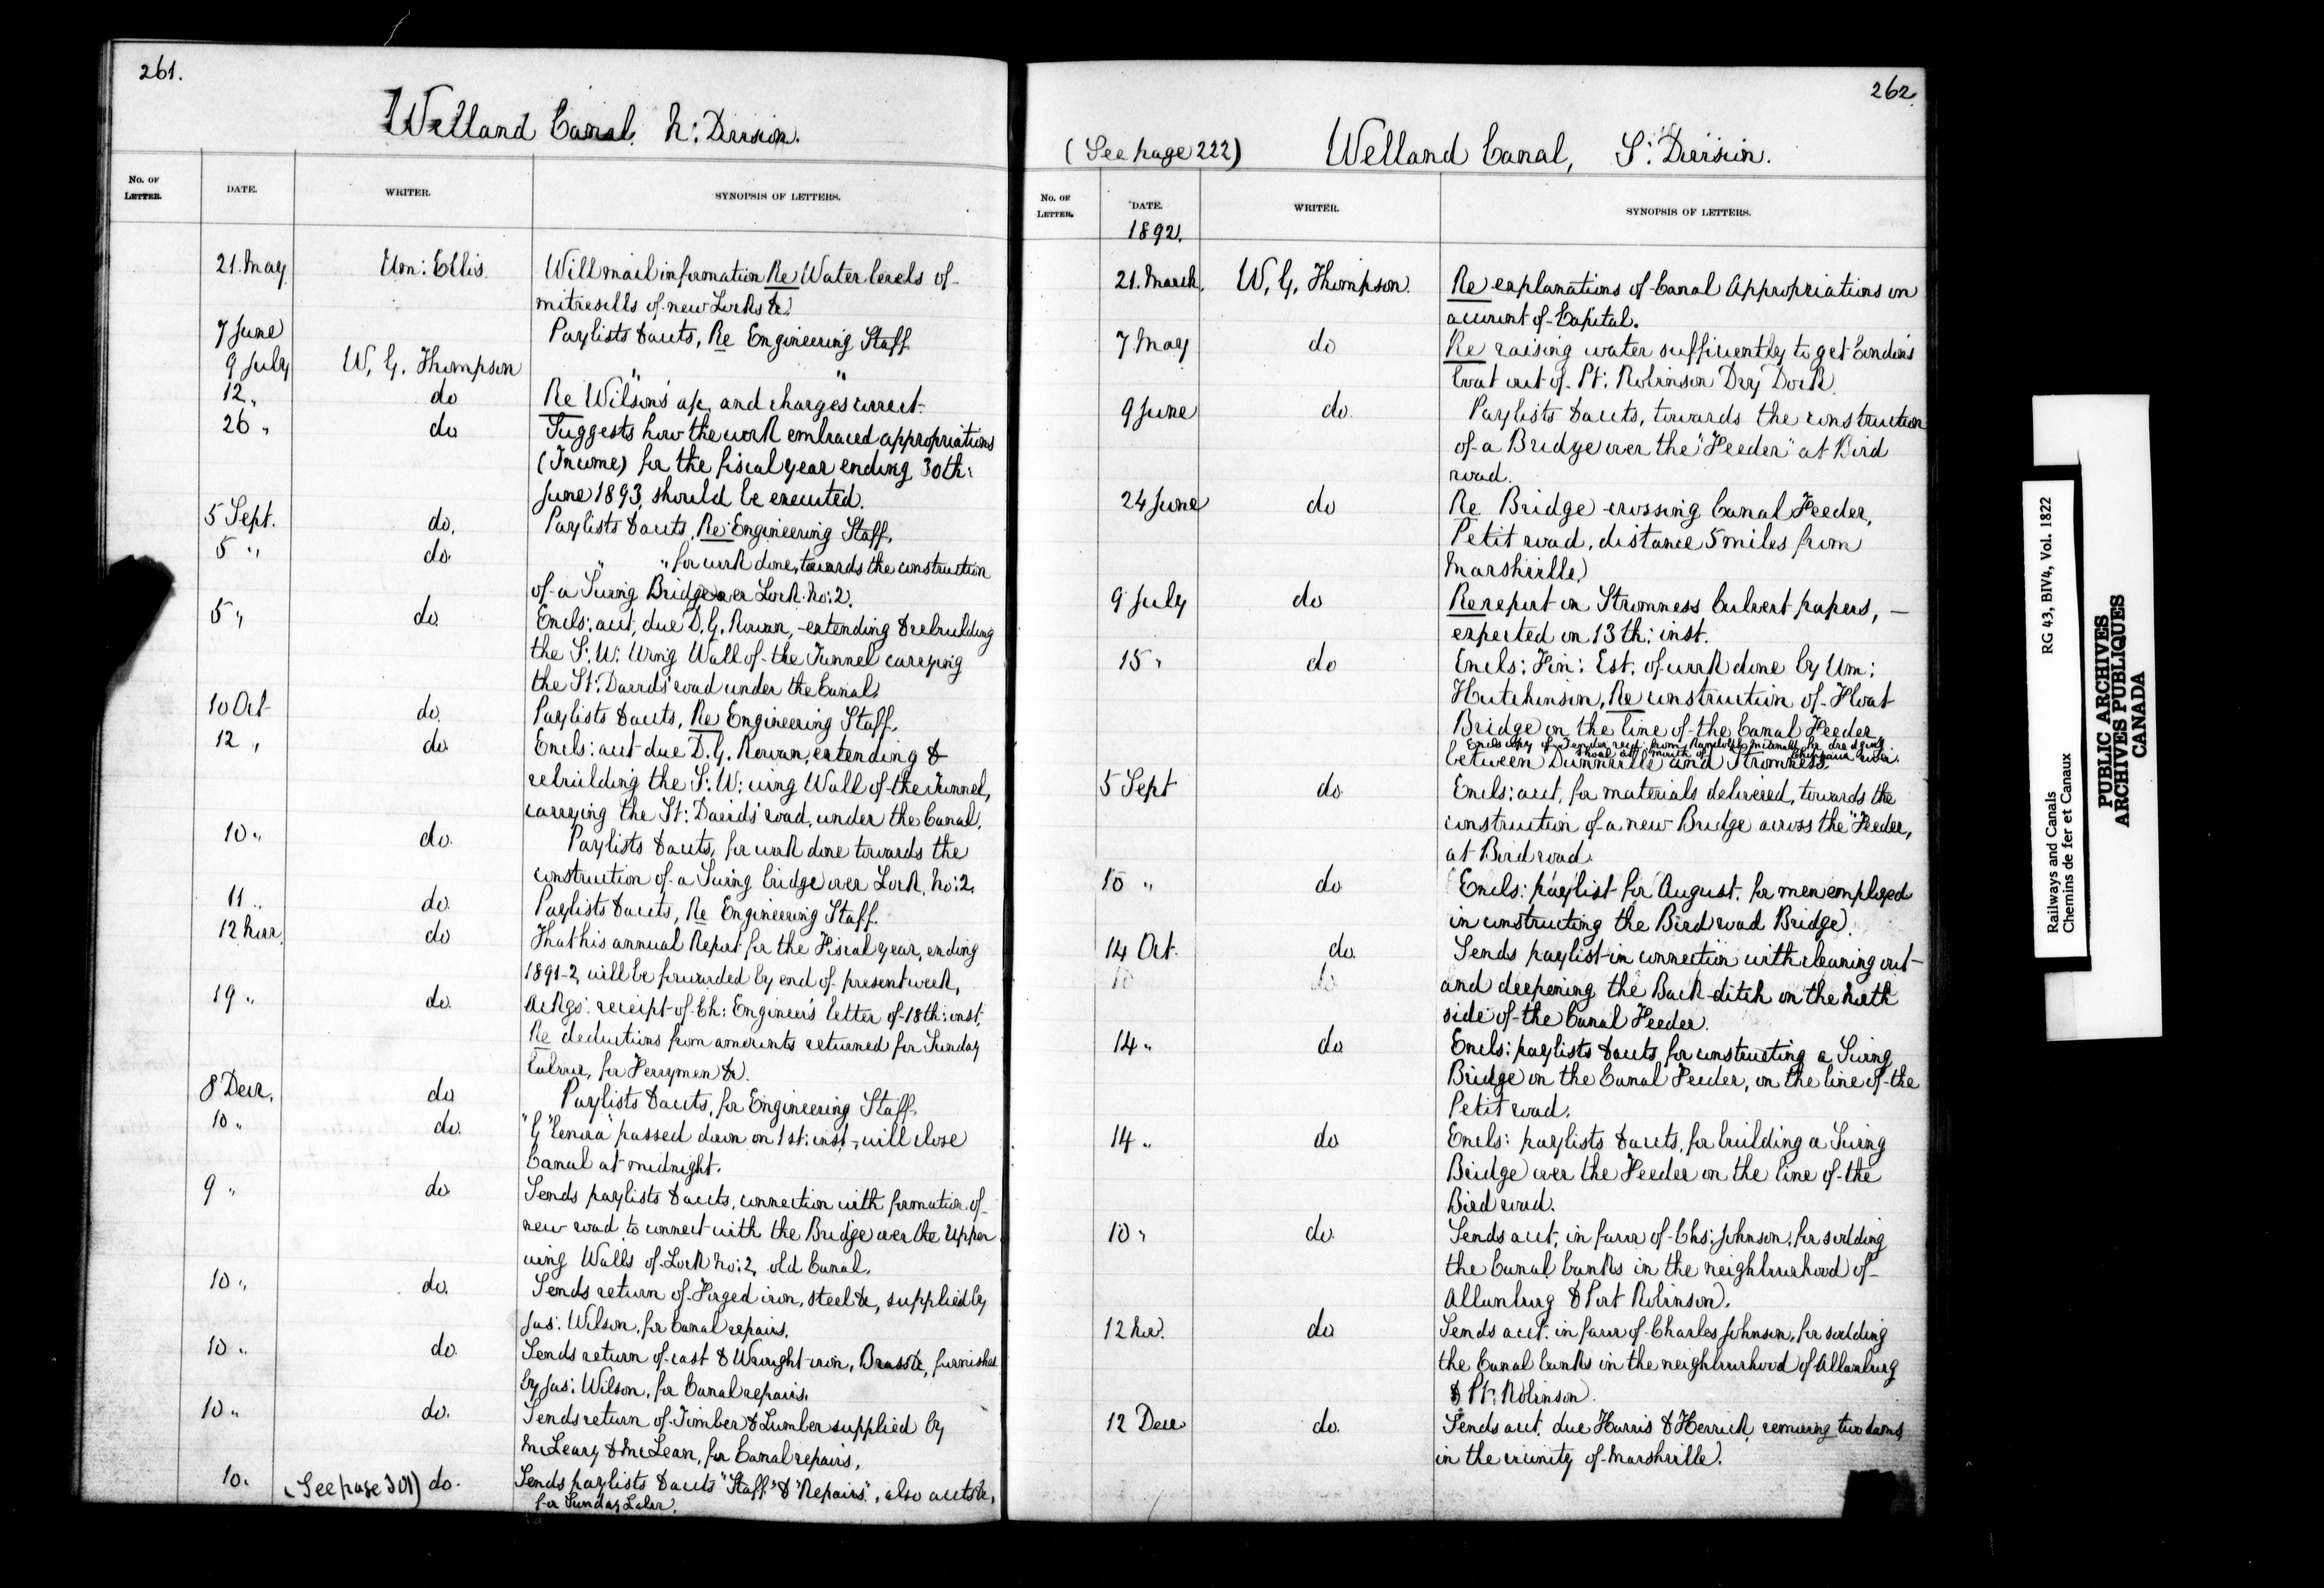 261.
Welland Canal. N: Division.
No. OF LETTER. DATE. WRITER. SYNOPSIS OF LETTERS.
21. May Wm: Ellis. Will mail information Re Water levels of
mitresills of new Locks &c.
7 June Paylists & accts, Re Engineering Staff
9 July W. G. Thompson " "
12 " do Re Wilson's a/c, and charges correct.
26 " do Suggests how the work embraced appropriations
(Income) for the fiscal year ending 30th:
June 1893, should be executed.
5 Sept. do. Paylists & accts, Re: Engineering Staff.
5 " do. " " for work done, towards the construction
of a Swing Bridge over Lock No: 2.
5 " do. Encls: acct, due D. G. Rowan, extending & rebuilding
the S. W. Wing Wall of the Tunnel carrying
the St: Davids' road under the Canal.
10 Oct do. Paylists & accts, Re Engineering Staff.
12 " do. Encls: acct due D. G. Rowan, extending &
rebuilding the S: W: wing Wall of the Tunnel,
carrying the St: Davids' road, under the Canal.
10 " do. Paylists & accts, for work done towards the
construction of a Swing bridge over Lock, No: 2.
11 " do. Paylists & accts, Re Engineering Staff.
12 Nov. do That his annual Report for the Fiscal year, ending
1891-2, will be forwarded by end of present week,
19 " do. Ackgs: receipt of Ch: Engineer's letter of 18th: inst.
Re deductions from amounts returned for Sunday
labour, for Ferrymen &c.
8 Decr. do Paylists & accts, for Engineering Staff.
10 " do. "Genora" passed down on 1st: inst, will close
Canal at midnight.
9 " do. Sends paylists & accts, connection with formation of
new road to connect with the Bridge over the upper
wing Walls of Lock No: 2, old Canal.
10 " do. Sends return of Forged iron, steel &c, supplied by
Jas: Wilson, for Canal repairs.
10 " do. Sends return of cast & Wrought iron, Brass &c, furnished
by Jas: Wilson, for Canal repairs.
10 " do. Sends return of Timber & Lumber supplied by
McLeary & McLean, for Canal repairs.
10. (See page 301) do. Sends paylists & accts "Staff" & "Repairs", also accts &c,
for Sunday Labor.
262.
(See page 222) Welland Canal, S: Division.
No. OF LETTER. DATE. WRITER. SYNOPSIS OF LETTERS.
1892.
21. March. W. G. Thompson. Re explanations of Canal Appropriations on
account of Capital.
7 May do Re raising water sufficiently to get Condons
boat out of Pt: Robinson Dry Dock.
9 June do. Paylists & accts, towards the construction
of a Bridge over the "Feeder" at Bird
road.
24 June do Re Bridge crossing Canal Feeder,
Petit road, distance 5 miles from
Marshville.
9 July do Re report on Stromness Culvert papers, —
expected on 13th: inst.
15 " do Encls: Fin: Est. of work done by Wm:
Hutchinson, Re construction of Float
Bridge on the line of the Canal Feeder
Encls copy of Tender recd from Randolph McDonald for dredging
shoal at mouth of Chippawa river.
between Dunnville and Stromness.
5 Sept do. Encls: acct, for materials delivered, towards the
construction of a new Bridge across the "Feeder,
at Bird road.
10 " do Encls: paylist for August, for men employed
in constructing the Bird road Bridge.
14 Oct. do. Sends paylist in connection with cleaning out
10 do and deepening the Back ditch on the North
side of the Canal Feeder.
14 " do. Encls: paylists & accts, for constructing a Swing
Bridge on the Canal Feeder, on the line of the
Petit road.
14 " do Encls: paylists & accts, for building a Swing
Bridge over the Feeder on the line of the
Bird road.
10 " do. Sends acct, in favor of Chs: Johnson, for sodding
the Canal banks in the neighbourhood of
Allanburg & Port Robinson.
12 Nov. do Sends acct. in favor of Charles Johnson, for sodding
the Canal banks in the neighbourhood of Allanburg
& Pt: Robinson.
12 Decr do. Sends acct. due Harris & Herrick, removing two dams,
in the vicinity of Marshville.
Railways and Canals RG 43, BIV4, Vol. 1822
Chemins de fer et Canaux
PUBLIC ARCHIVES
ARCHIVES PUBLIQUES
CANADA